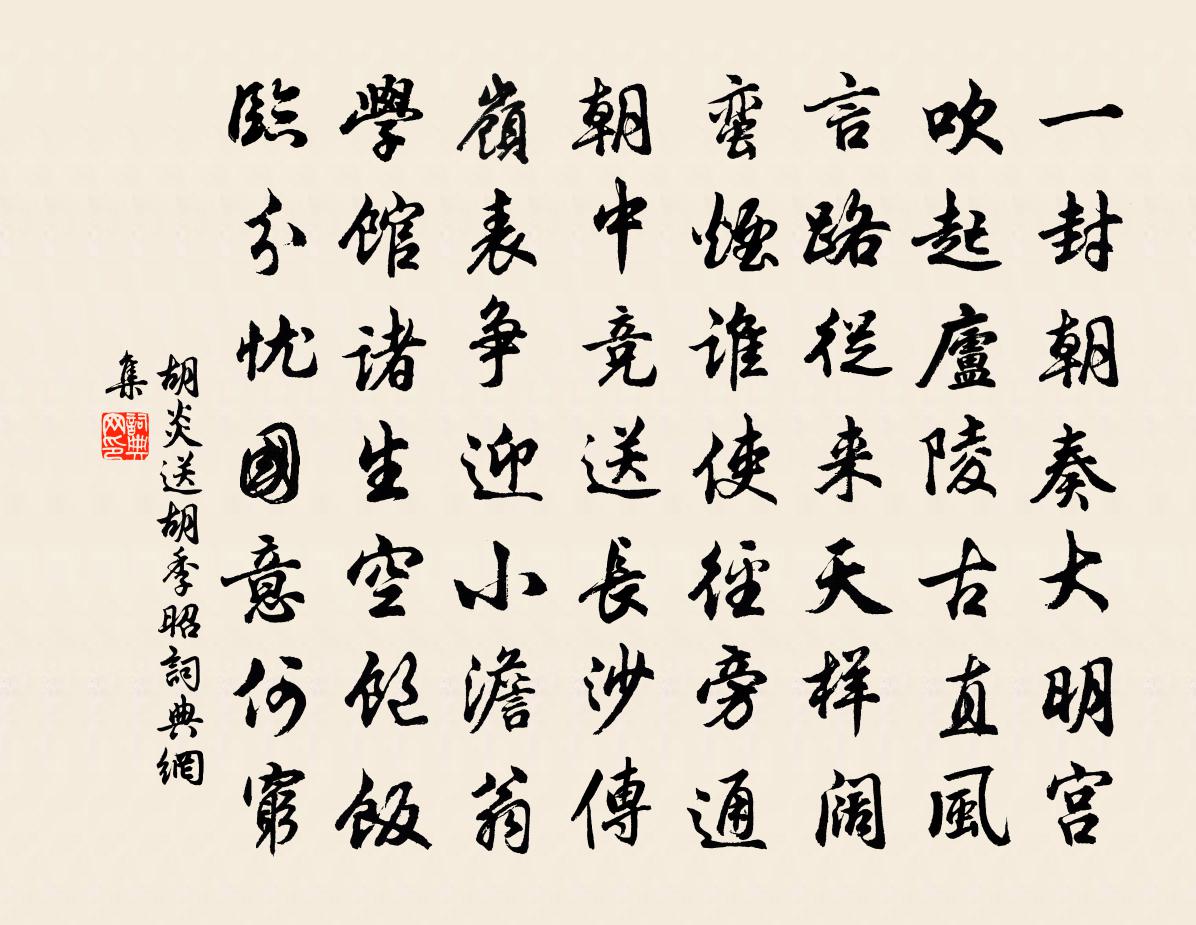 一封朝奏大明宫
吹起廬陵古直風
言路從来天样阔
蛮煙谁使徑旁通
朝中竞送長沙傅
嶺表争迎小澹翁
學館諸生空飽飯
臨分忧國意何窮
胡炎送胡季昭詞典網
集
詞典
网印